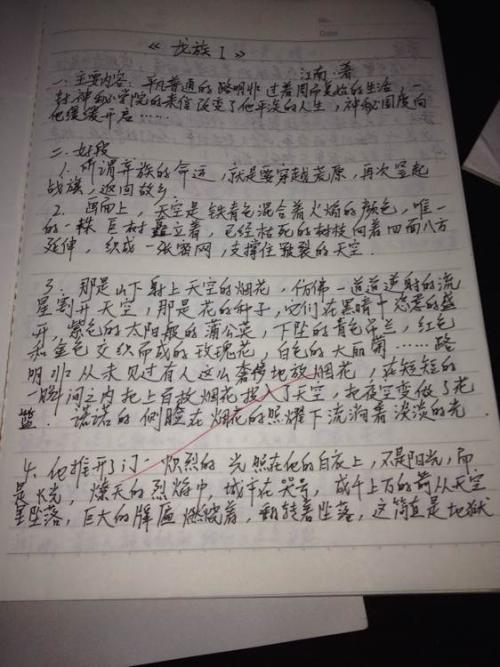 No.
Date
《龙族Ⅰ》
江南·著
一、主要内容：平凡普通的路明非过着周而复始的生活，一
封神秘学院的来信改变了他平淡的人生，神秘国度向
他缓缓开启……
二、好段
1、所谓弃族的命运，就是要穿越荒原，再次竖起
战旗，返回故乡
2、画面上，天空是铁青色混合着火焰的颜色，唯一
的一株巨树矗立着，已经枯死的树枝向着四面八方
延伸，织成一张密网，支撑住皲裂的天空.
3、那是山下射上天空的烟花，仿佛一道道逆射的流
星割开天空，那是花的种子，它们在黑暗中恣意的盛
开，紫色的太阳般的蒲公英，下坠的青色吊兰，红色
和金色交织而成的玫瑰花，白色的大丽菊……路
明非从未见过有人这么奢侈地放烟花，在短短的
一瞬间之内把上百枚烟花投入了天空，把夜空变做了花
篮. 诺诺的侧脸在烟花的照耀下流淌着淡淡的光
4、他推开了门一炽烈的光照在他的白友上，不是阳光，而
是火光，燎天的烈焰中，城市在哭号，成千上万的箭从天空
里坠落，巨大的牌匾燃烧着，翻转着坠落，这简直是地狱